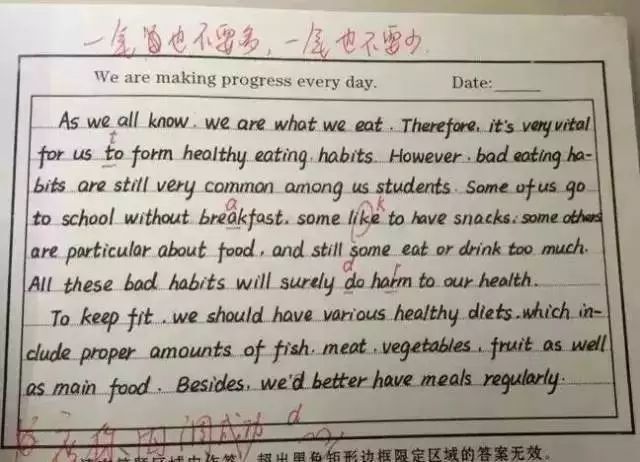 一尾当也不要多，一尾也不要少.
We are making progress every day. Date:
As we all know, we are what we eat. Therefore, it's very vital
t
for us to form healthy eating habits. However, bad eating ha-
bits are still very common among us students. Some of us go
a k
to school without breakfast, some like to have snacks, some others
are particular about food, and still some eat or drink too much.
d r
All these bad habits will surely do harm to our health.
To keep fit, we should have various healthy diets, which in-
clude proper amounts of fish, meat, vegetables, fruit as well
as main food. Besides, we'd better have meals regularly.
成功 d
超出黑色矩形边框限定区域的答案无效。